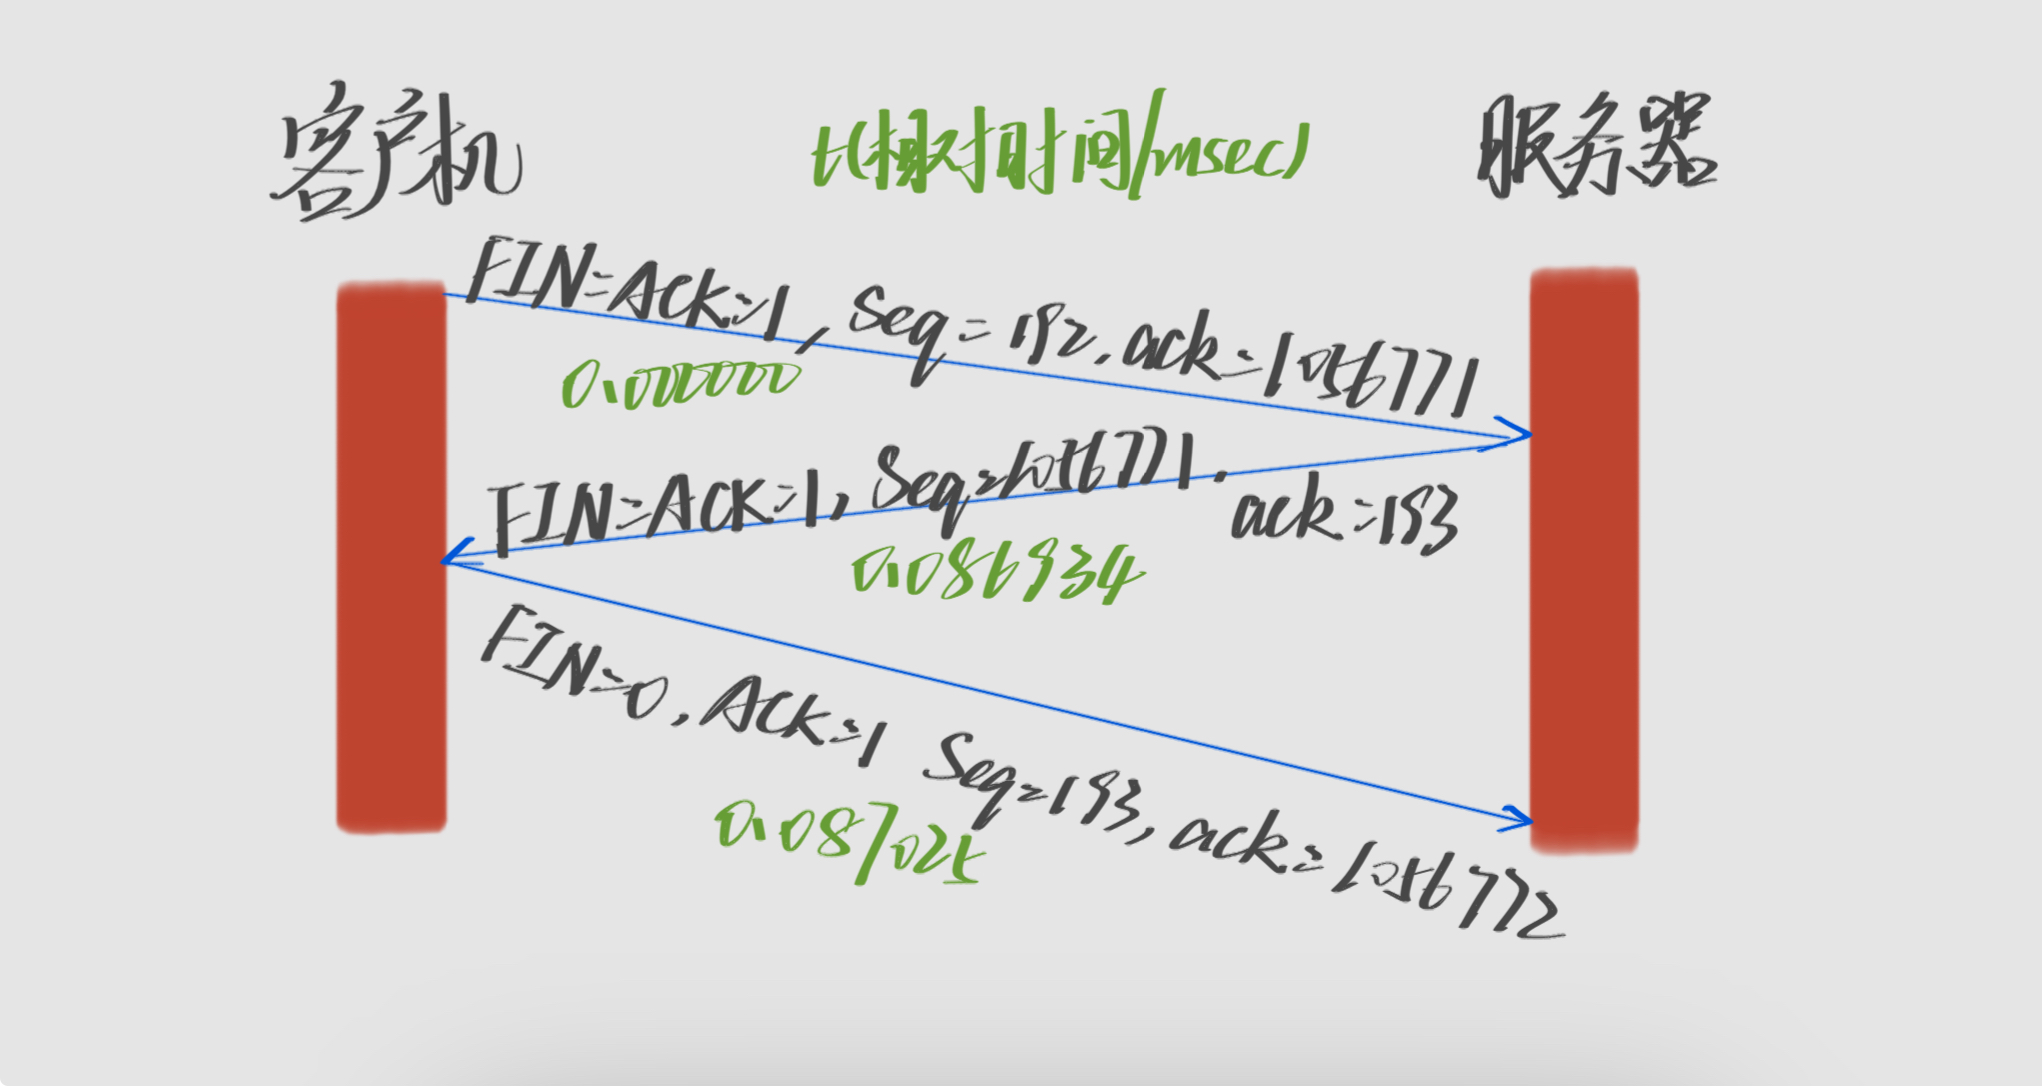 客户机
t(相对时间/msec)
服务器
FIN=ACK=1, Seq=192, ack=1056771
0.000000
FIN=ACK=1, Seq=1056771, ack=193
0.086934
FIN=0, ACK=1 Seq=193, ack=1056772
0.087025